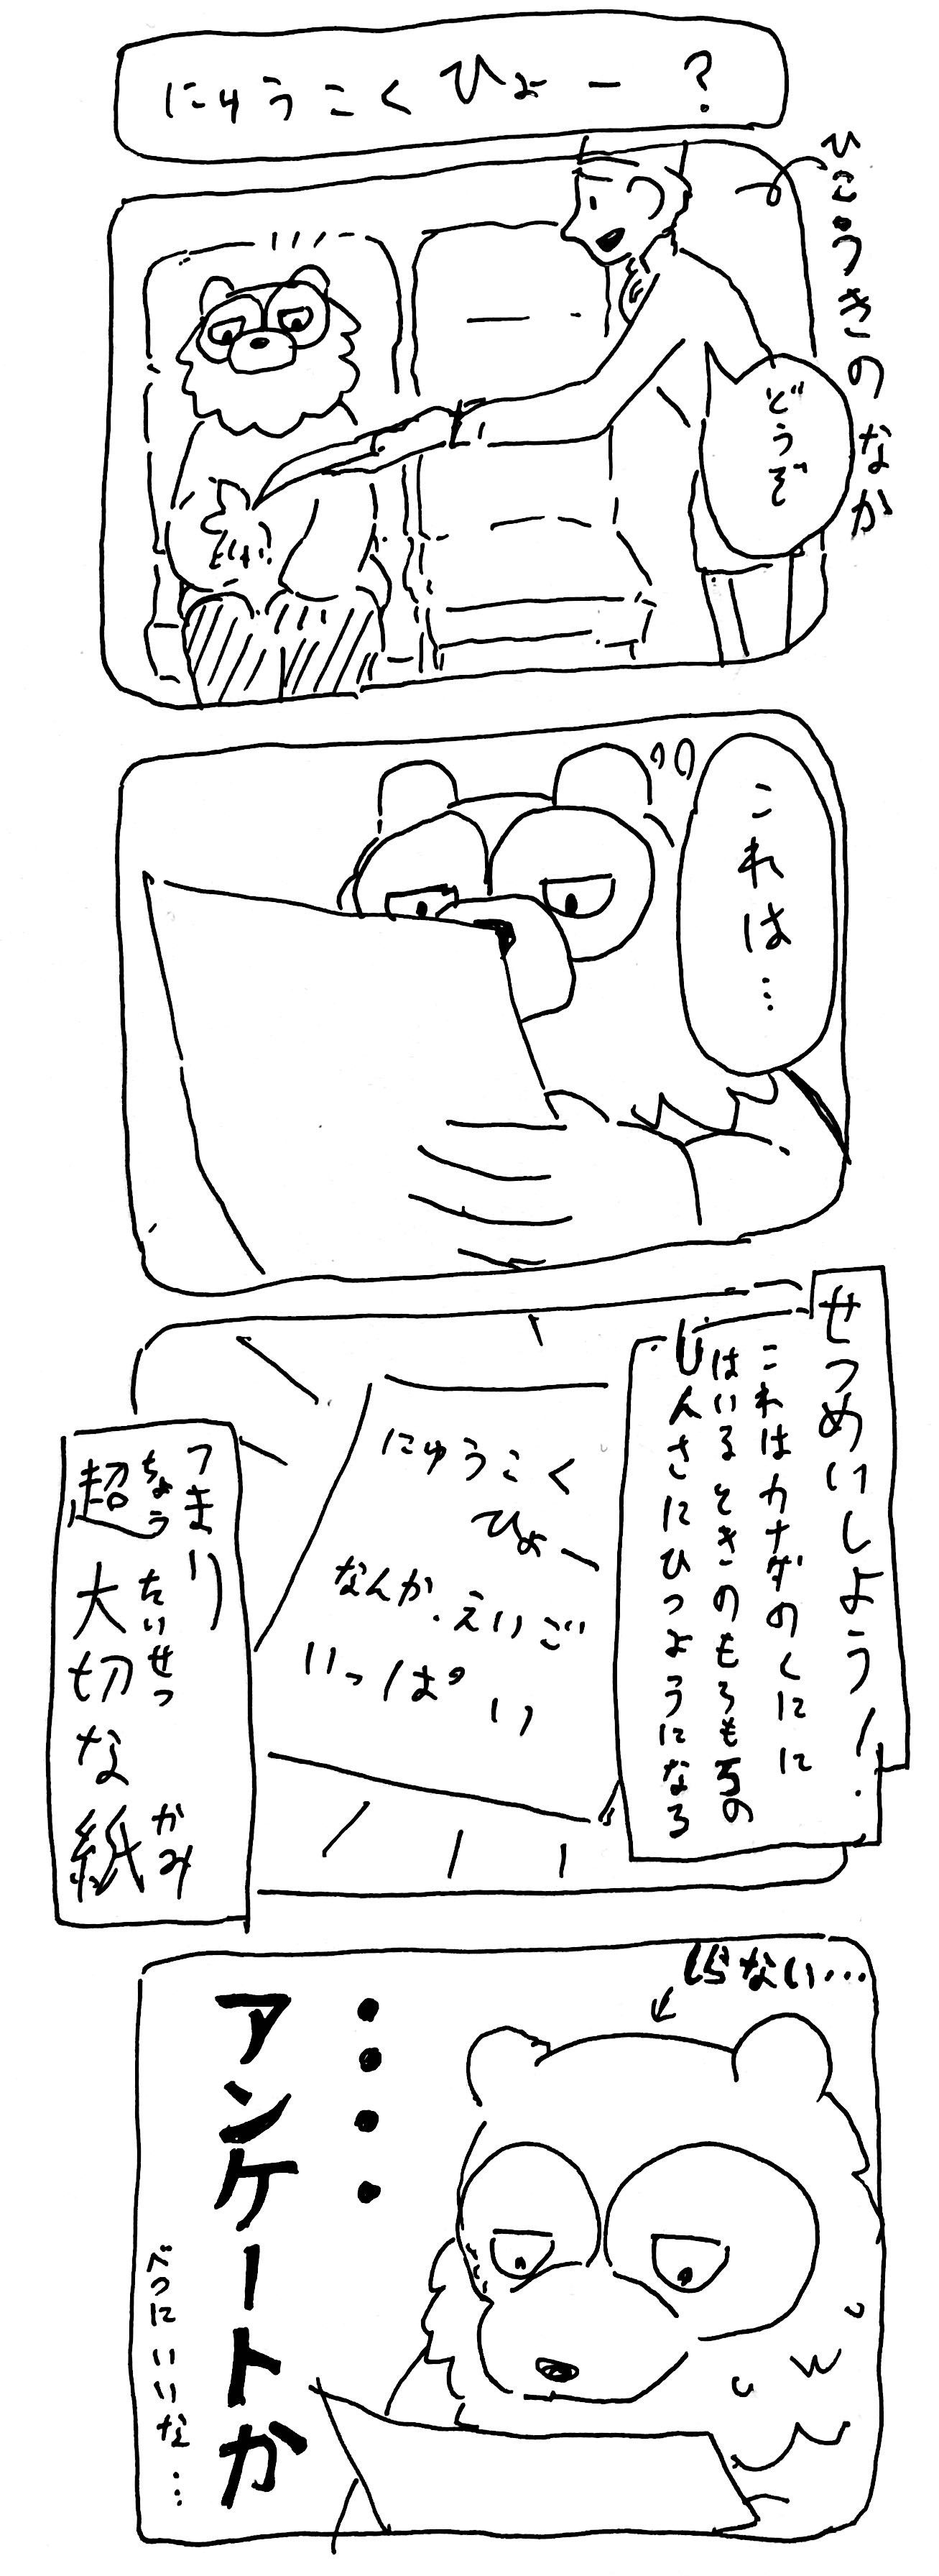 にゅうこくひょー?
ひこうきのなか
どうぞ
これは…
せつめいしよう!
これはカナダのくにに
はいるときのもろもろの
しんさにひつようになる
にゅうこく
ひょー
なんか、えいご
いっぱい
つまり
超大切な紙
ちょう たいせつ かみ
しらない…
・・・・
アンケートか
べつにいいな…